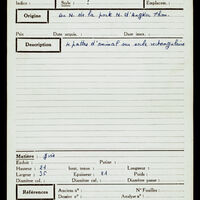 Indice : Style : Emplacem. :
Origine au N. de la porte N. d'Angkor Thom.
Prix Date acquis. Date entrée :
Description 4 pattes d'animal sur socle rectangulaire
Matière : grès
Enduit : Patine :
Hauteur : 21 haut. tenon : Longueur :
Largeur : 35 Épaisseur : 21 Poids :
Diamètre col. : Diamètre :
Références Ancien n° : N° Feuillet :
Dessin n° : Analyse n° :